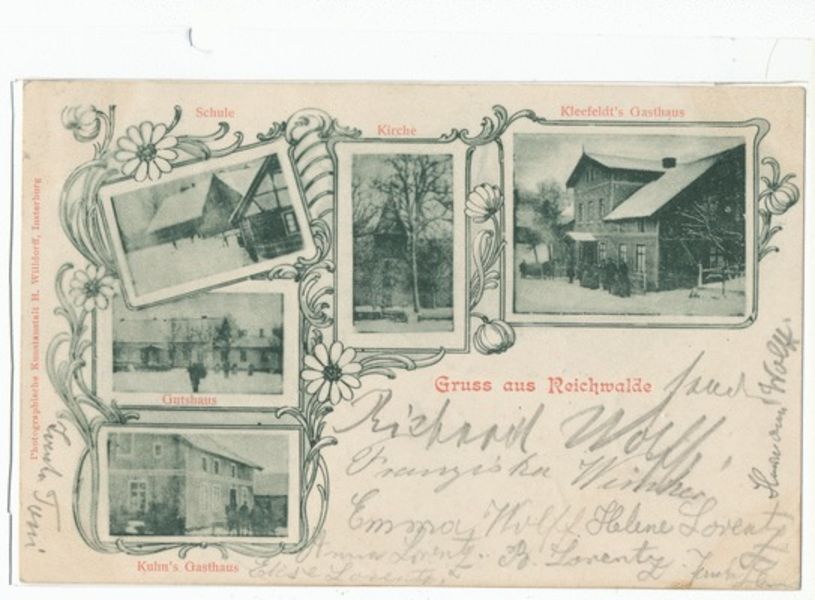 Schule
Kirche
Kleefeldt's Gasthaus
Photographische Kunstanstalt H. Willdorff, Insterburg
Gutshaus
Gruss aus Reichwalde
Kuhn's Gasthaus
Richard Wolff
Franziska
Emma Wolff Helene Lorentz
Anna Lorentz. B. Lorentz
Elise Lorentz.
Wolff.